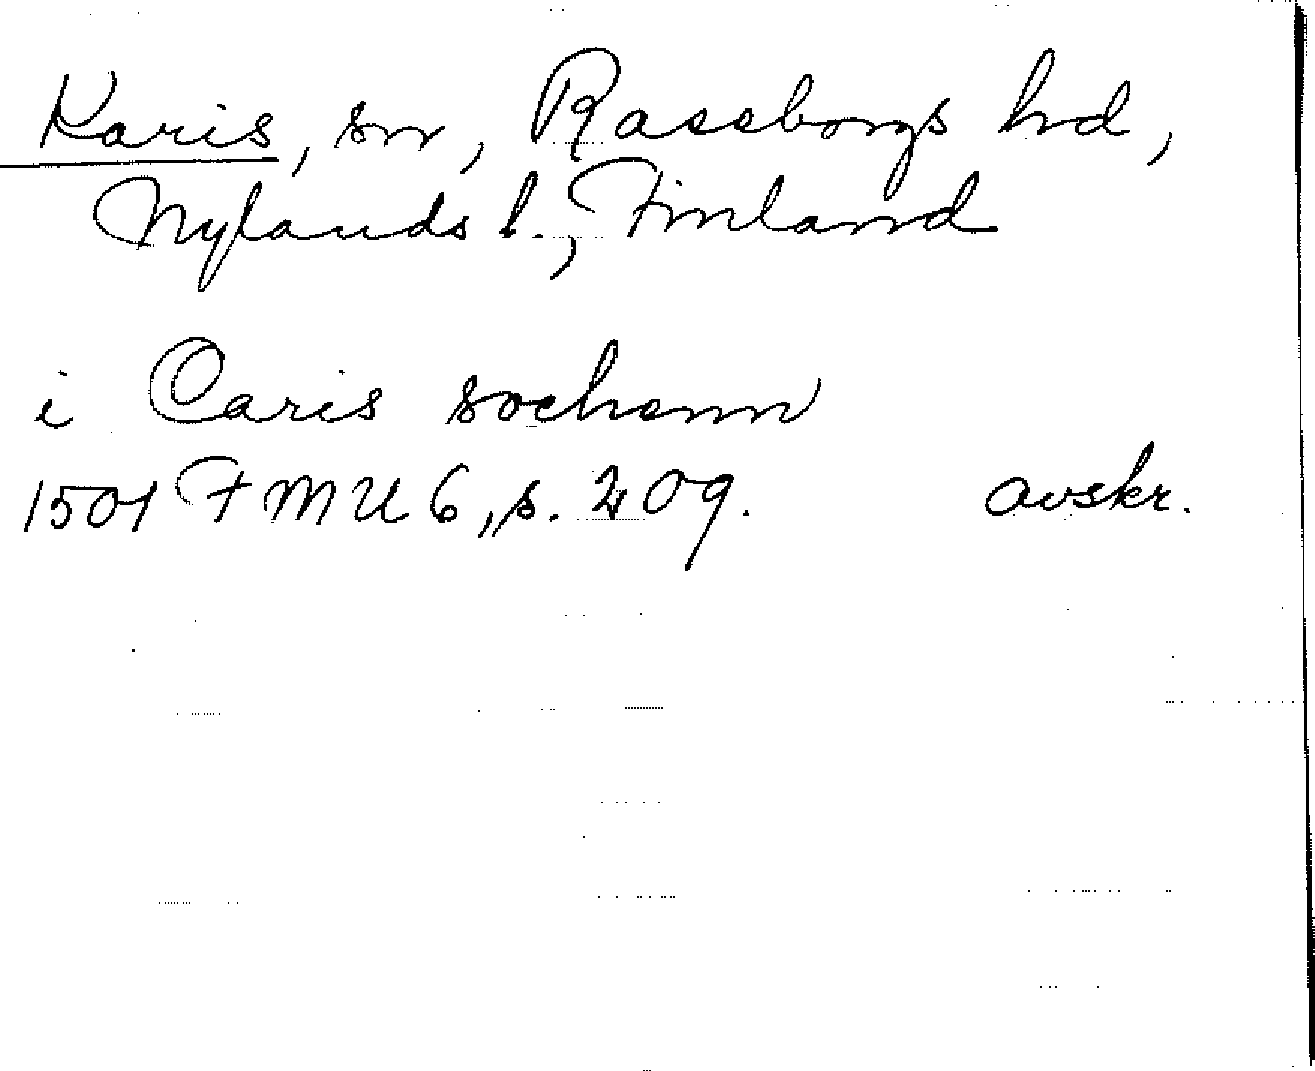 Karis, sn, Rasseborgs hd,
Nylands l., Finland
i Caris sochenn
1501 FMU 6, s. 209. avskr.